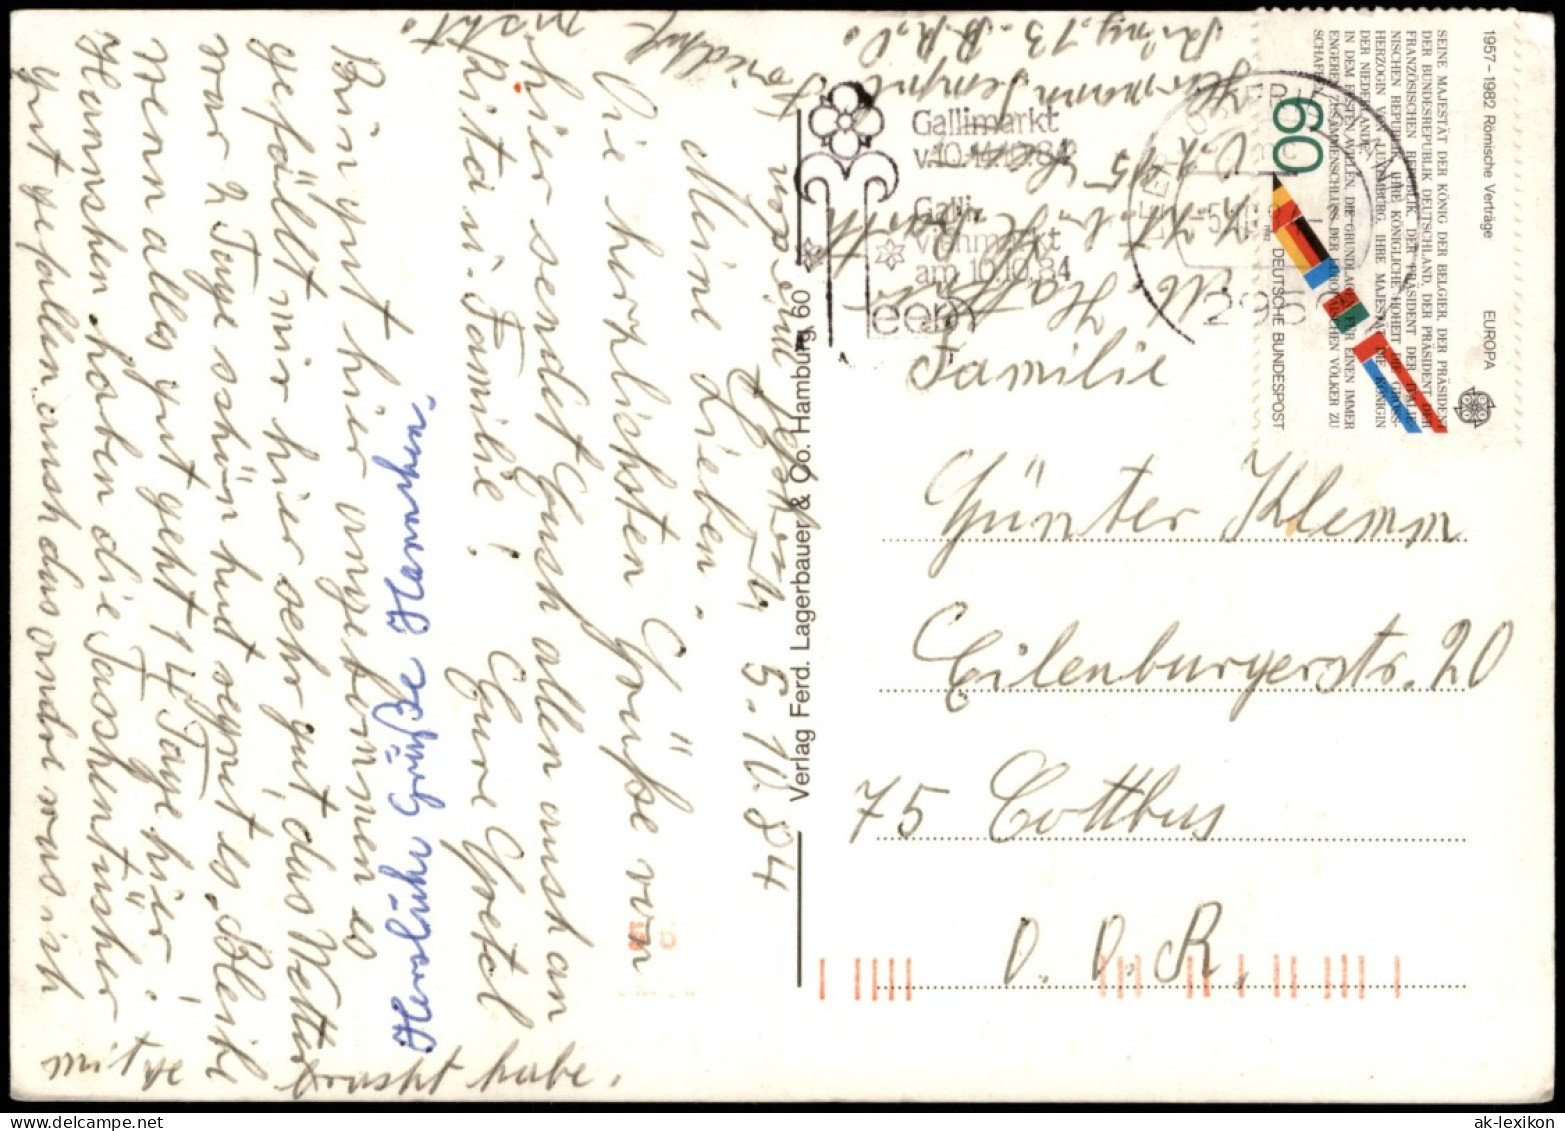 Jheringsf., 5.10.84
Meine Lieben.
Die herzlichsten Grüße von
hier sendet Eusch allen aush an
Rita u. Familie! Eure Gretel
Bin gut hier angekommen es
gefällt mir hier sehr gut, das Wetter
war 2 Tage sshön hut regnet es. Bleibe
wenn alles gut geht 14 Tage hier.
Hannshen haben die Tasshentüsher
gut gefallen aush das andre was ish
mit ge brasht habe.
Herzlühe Grüße Hannchen.
nisht.
Hermann Tempel
Ring. 13 - B.R.D.
Verlag Ferd. Lagerbauer & Co. Hamburg 60
Gallimarkt
v. 10.-14.10.84
Galli-
Viehmarkt
am 10.10.84
Leer
LEER OSTFRIESLAND
-5.10.84
2950
1957–1982 Römische Verträge EUROPA
SEINE MAJESTÄT DER KÖNIG DER BELGIER, DER PRÄSIDENT
DER BUNDESREPUBLIK DEUTSCHLAND, DER PRÄSIDENT DER
FRANZÖSISCHEN REPUBLIK, DER PRÄSIDENT DER ITALIE-
NISCHEN REPUBLIK, IHRE KÖNIGLICHE HOHEIT DIE GROSS-
HERZOGIN VON LUXEMBURG, IHRE MAJESTÄT DIE KÖNIGIN
DER NIEDERLANDE,
IN DEM FESTEN WILLEN, DIE GRUNDLAGEN FÜR EINEN IMMER
ENGEREN ZUSAMMENSCHLUSS DER EUROPÄISCHEN VÖLKER ZU
SCHAFFEN
60
1982 DEUTSCHE BUNDESPOST
Familie
Günter Klemm
Eilenburgerstr. 20
75 Cottbus
D.D.R.
ak-lexikon.com